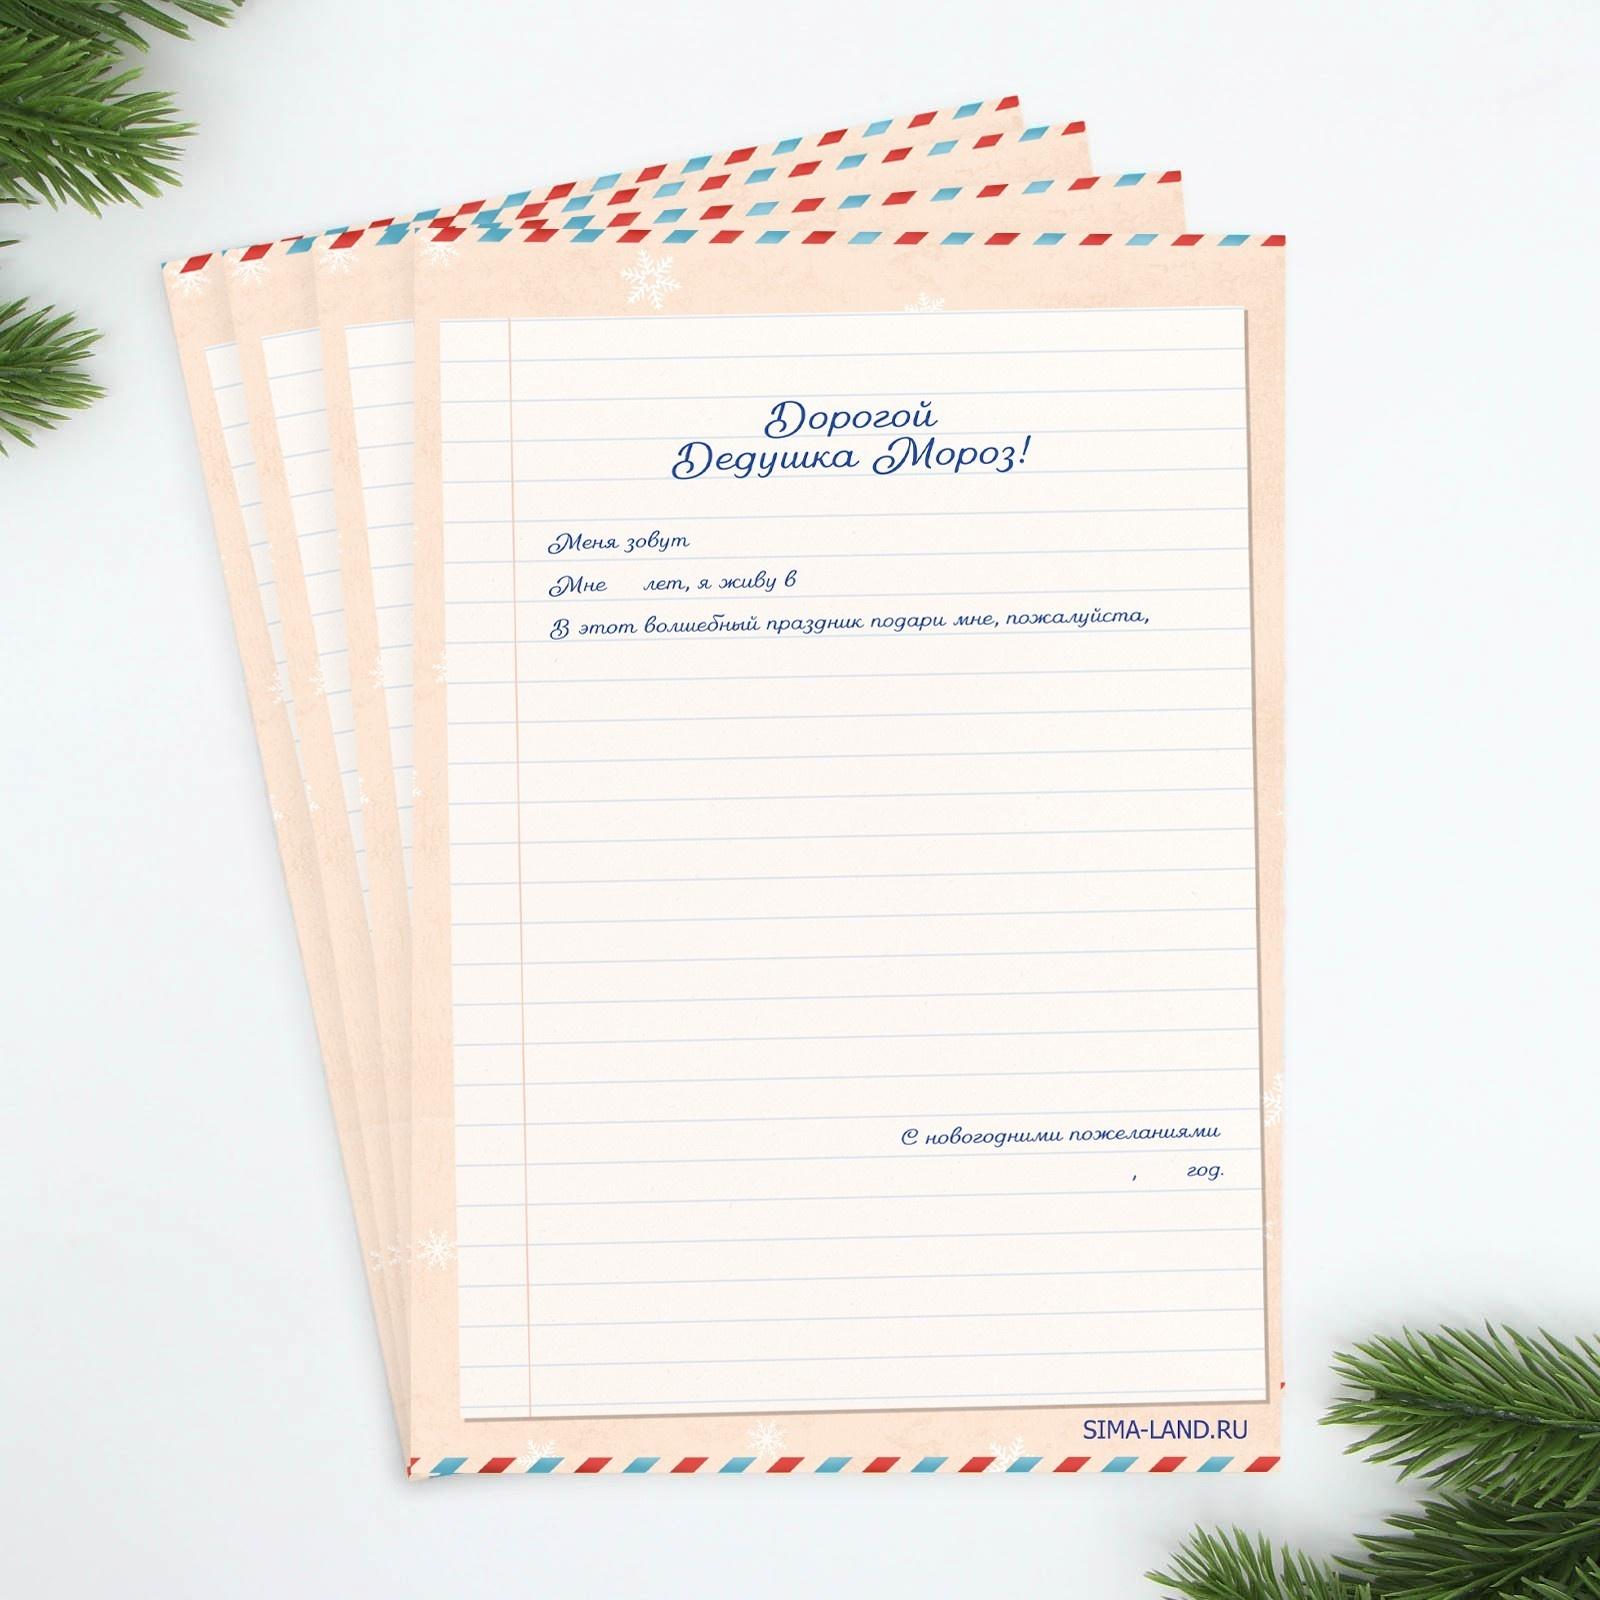 Дорогой
Дедушка Мороз!
Меня зовут
Мне лет, я живу в
В этот волшебный праздник подари мне, пожалуйста,
С новогодними пожеланиями
, год.
SIMA-LAND.RU